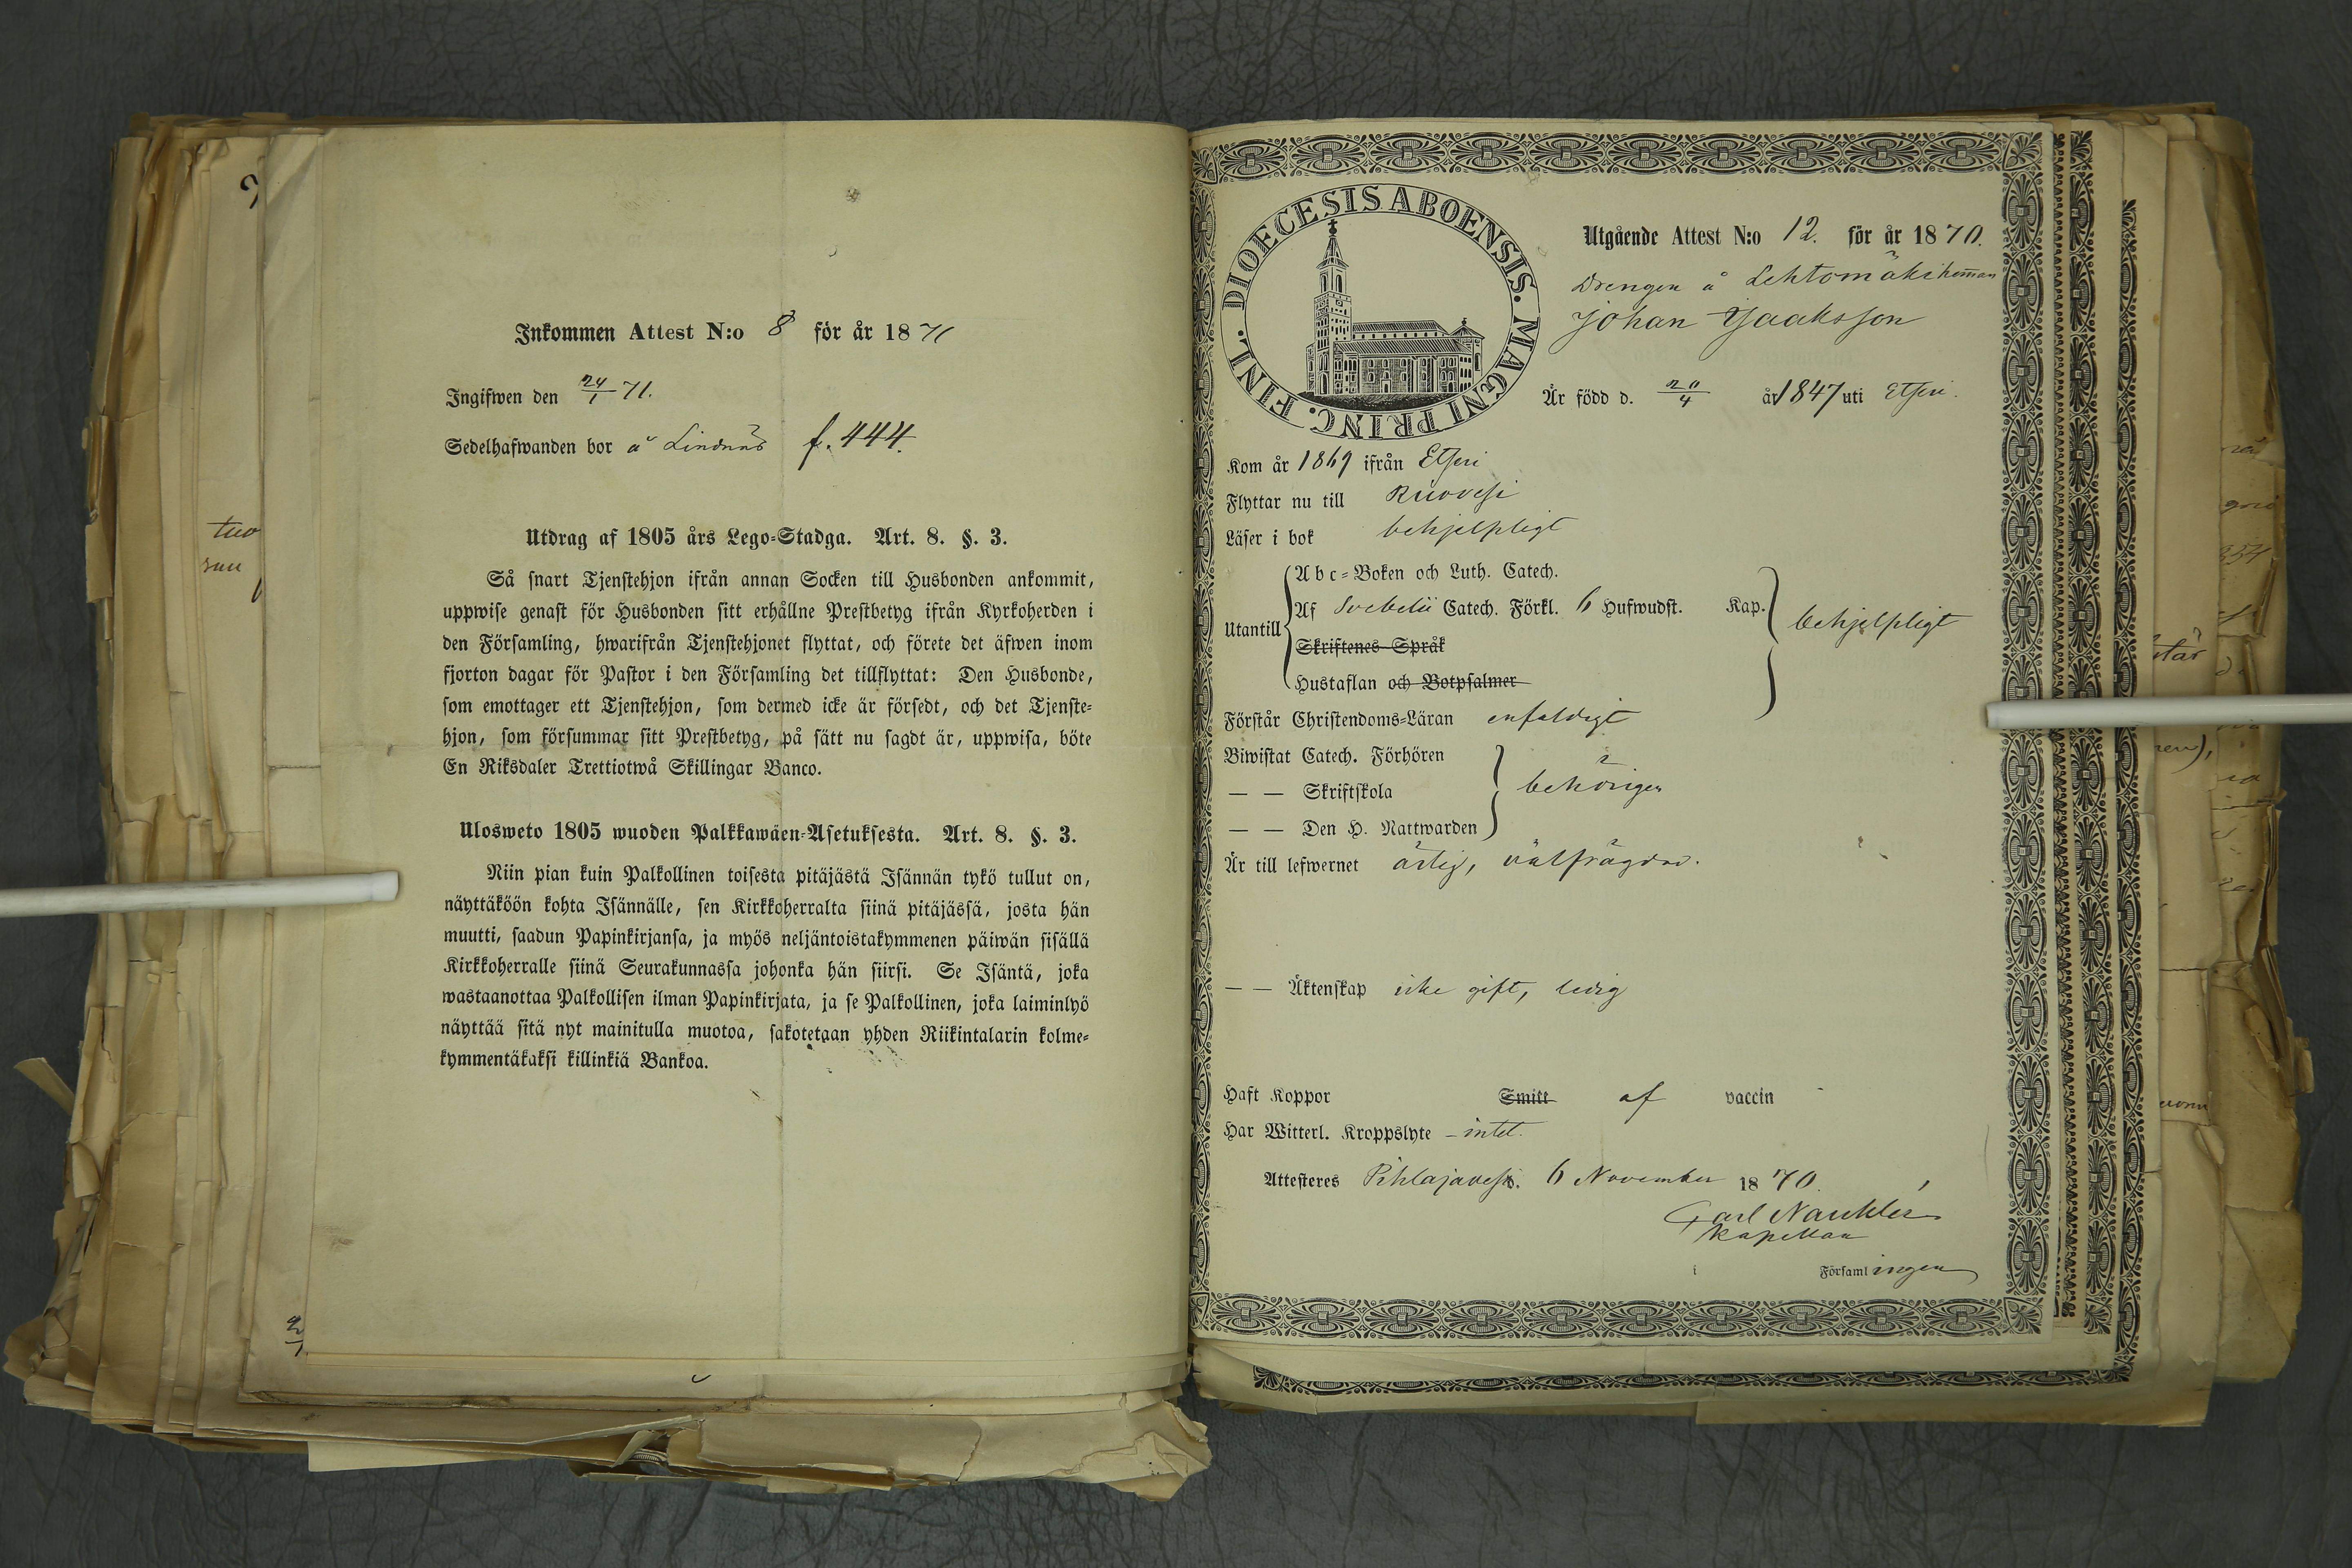 Inkommen Attest N:o 8 för år 1871
Ingifwen den 24/1 71.
Sedelhafwanden bor å Lindnäs f. 444.
Utdrag af 1805 års Lego-Stadga. Art. 8. §. 3.
Så snart Tjenstehjon ifrån annan Socken till Husbonden ankommit,
uppwise genast för Husbonden sitt erhållne Prestbetyg ifrån Kyrkoherden i
den Församling, hwarifrån Tjenstehjonet flyttat, och förete det äfwen inom
fjorton dagar för Pastor i den Församling det tillflyttat: Den Husbonde,
som emottager ett Tjenstehjon, som dermed icke är försedt, och det Tjenste-
hjon, som försummar sitt Prestbetyg, på sätt nu sagdt är, uppwisa, böte
En Riksdaler Trettiotwå Skillingar Banco.
Ulosweto 1805 wuoden Palkkawäen-Asetuksesta. Art. 8. §. 3.
Niin pian kuin Palkollinen toisesta pitäjästä Isännän tykö tullut on,
näyttäköön kohta Isännälle, sen Kirkkoherralta siinä pitäjässä, josta hän
muutti, saadun Papinkirjansa, ja myös neljäntoistakymmenen päiwän sisällä
Kirkkoherralle siinä Seurakunnassa johonka hän siirsi. Se Isäntä, joka
wastaanottaa Palkollisen ilman Papinkirjata, ja se Palkollinen, joka laiminlyö
näyttää sitä nyt mainitulla muotoa, sakotetaan yhden Riikintalarin kolme-
kymmentäkaksi killinkiä Bankoa.
DIOECESIS ABOENSIS. MAGNI PRINC. FINL.
Utgående Attest N:o 12. för år 1870.
Drengen å Lehtomäki heman
Johan Jaaksson
Är född d. 20/4 år 1847 uti Etseri.
Kom år 1869 ifrån Etseri
Flyttar nu till Ruovesi
Läser i bok behjelpligt
Utantill
Abc-Boken och Luth. Catech.
Af Svebelii Catech. Förkl. 6 Hufwudst. Kap. behjelpligt
Skriftenes Språk
Hustaflan och Botpsalmer
Förstår Christendoms-Läran enfaldigt
Biwistat Catech. Förhören
— — Skriftskola behörigen
— — Den H. Nattwarden
Är till lefwernet ärlig, välfrägdad.
— — Äktenskap icke gift, ledig
Haft Koppor Smitt af vaccin
Har Witterl. Kroppslyte – intet.
Attesteres Pihlajavesi. 6 November 1870.
Carl Nauklér
Kapellan
i Församlingen